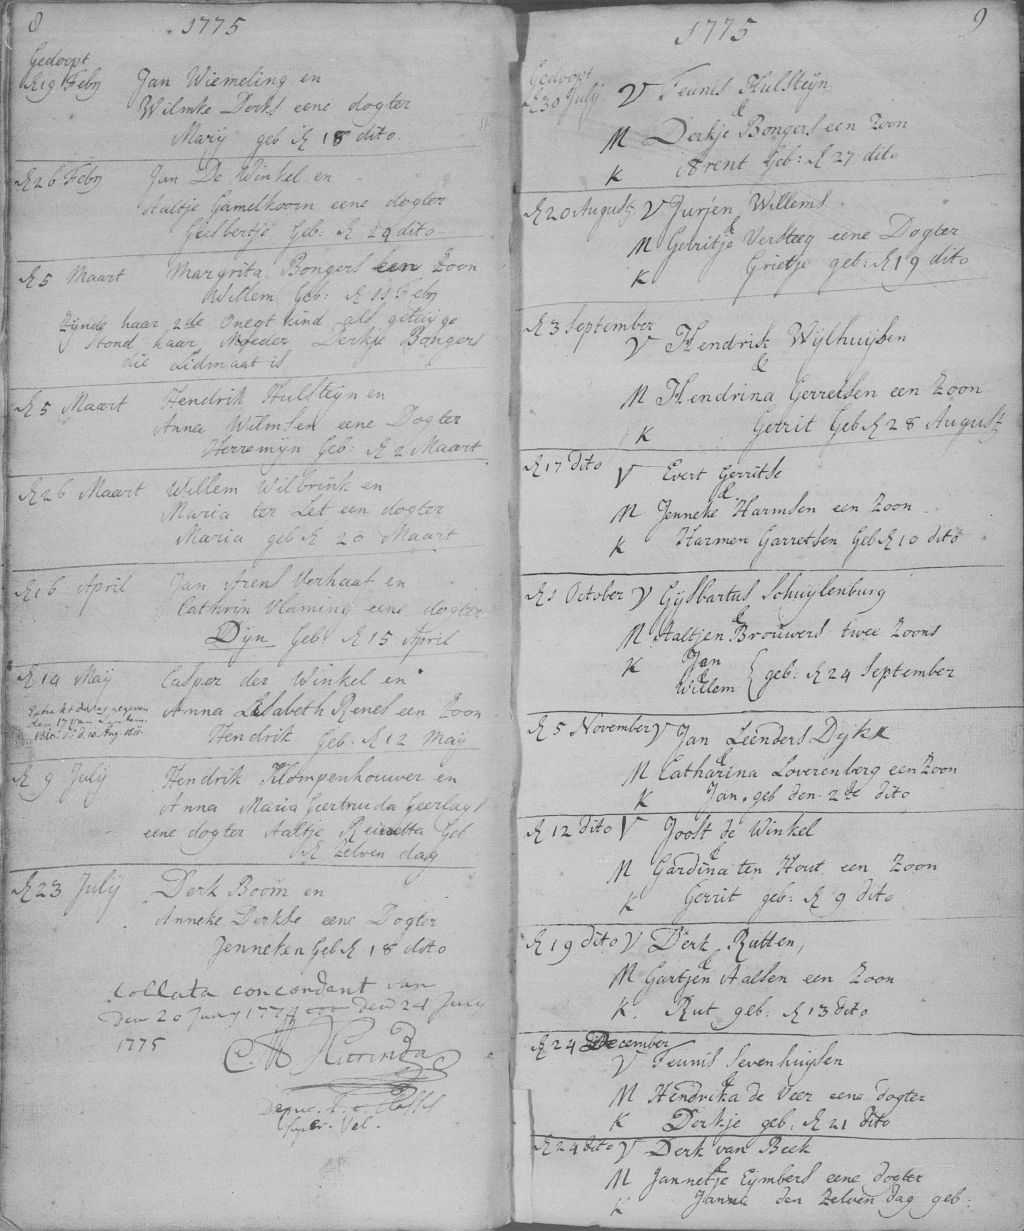 8
1775
Gedoopt
Æ 19 Febrij Jan Wiemeling en
Wilmke Derks eene dogter
Marij geb Æ 18 dito.
Æ 26 Febrij Jan De Winkel en
Aaltje Gamelhoorn eene dogter
Geisbertje Geb: Æ 24 dito
Æ 5 Maart Margrita Bongers een Zoon
Willem Geb: Æ 11 Febrij
zijnde haar 2de Onegt kind als getuijge
stond haar Moeder Derkje Bongers
die Lidmaat is
Æ 5 Maart Hendrik Hulsteijn en
Anna Wilmsen eene Dogter
Herremijn Geb: Æ 2 Maart
Æ 26 Maart Willem Wilbrink en
Maria ter Let een dogter
Maria geb Æ 20 Maart
Æ 16 April Jan Arens Verhaaf en
Cathrin Vlaming eene dogter
Dijn Geb: Æ 15 April
Æ 14 Maij Casper der Winkel en
Anna Lisabeth Renes een Zoon
Hendrik Geb: Æ 12 Maij
Æ 9 Julij Hendrik Klompenhouwer en
Anna Maria Geertruida Geerlags
eene dogter Aaltje Reinetta Geb
Æ Zelven dag
Æ 23 Julij Derk Boom en
Anneke Derkse eene Dogter
Jenneken Geb Æ 18 dito
Collata concordant van
den 20 Junij 1774 tot den 24 Julij
1775
9
1775
Gedoopt
Æ 30 Julij V Teunis Hulsteijn
&
M Derkje Bongers een Zoon
K Arent Geb: Æ 27 dito
Æ 20 August V Jurjen Willems
&
M Gerritje Versteeg eene Dogter
K Grietje geb: Æ 19 dito
Æ 3 September
V Hendrik Wijlhuijsen
&
M Hendrina Gerretsen een Zoon
K Gerrit Geb Æ 28 August
Æ 17 dito V Evert Gerritse
&
M Jenneke Harmsen een Zoon
K Harmen Garretsen Geb Æ 10 dito
Æ 1 October V Gijsbartus Schuijlenburg
&
M Aaltjen Brouwers twee Zoons
K Jan
&
Willem { geb: Æ 24 September
Æ 5 November V Jan Leenders Dijkx
&
M Catharina Loverenberg een Zoon
K Jan. geb den 2de dito
Æ 12 dito V Joost de Winkel
&
M Gardina ten Hout een Zoon
K Gerrit geb: Æ 9 dito
Æ 19 dito V Derk Rutten,
&
M Gartjen Aalsen een Zoon
K. Rut geb: Æ 13 dito
Æ 24 December
V Teunis Sevenhuijsen
&
M Hendrika de Veer eene dogter
K Derkje geb: Æ 21 dito
Æ 24 dito V Derk van Beek
&
M Jannetje Eijmbers eene dogter
K den Zelven dag geb: